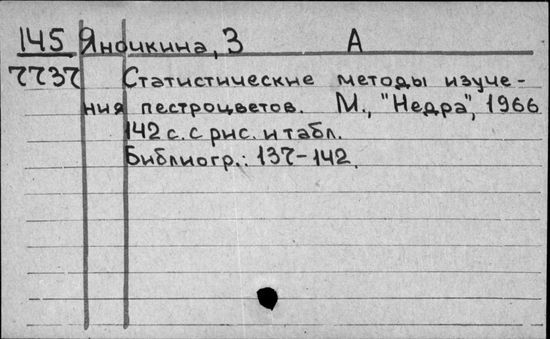 145 Яночкина, З А
7737 Статистические методы изуче-
ния пестроцветов. М., "Недра", 1966
142 с. с рис. и табл.
Библиогр.: 137-142.